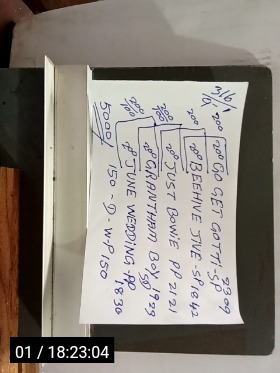 20° 20° GO GET GOTHI-SP 2309
20° 20° BEEHIVE JIVE-SP 1842
20° JUST BOWIE PP 2121
20° GRANTHAM BOY 1923
SP
JUNE WEDDING-PP 1836
5000/ 150-D-W-P150
01 / 18:23:04